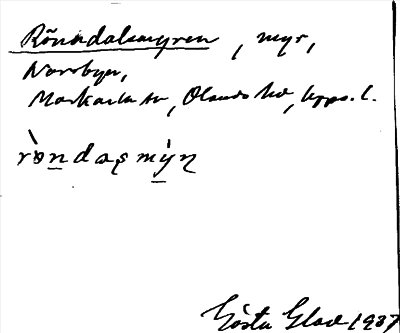 Rönndalsmyren, myr,
Norrbyn,
Markarln sn, Olands hd, Upps. l.
rò̱ndas mỳn
Gösta Glad 1937